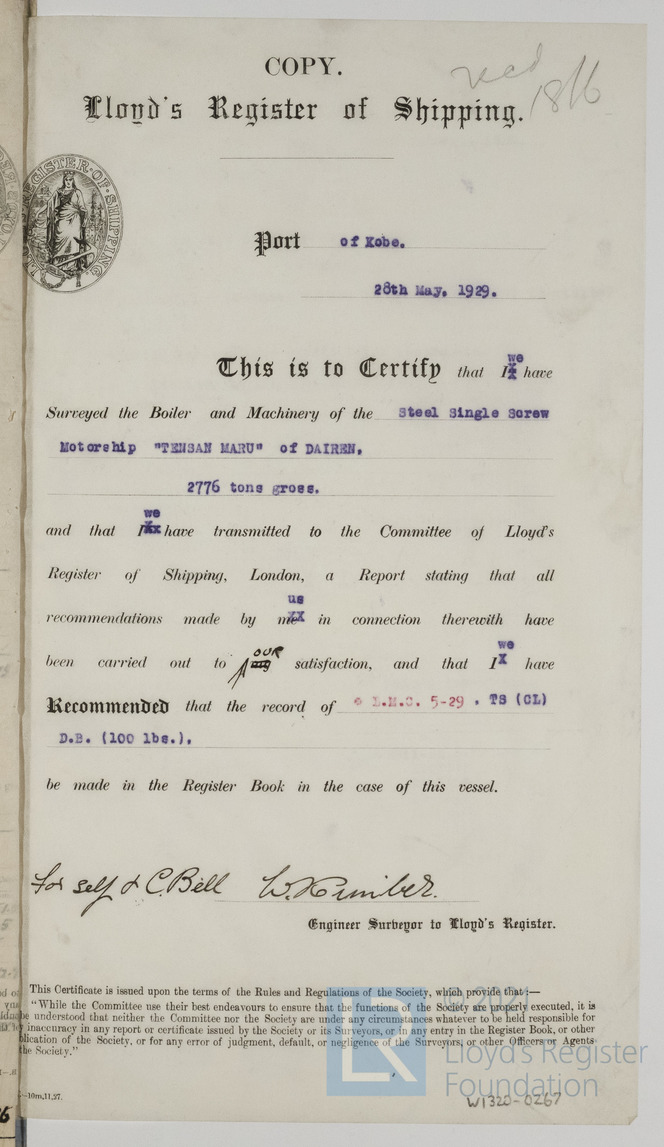 COPY.
Lloyd's Register of Shipping.
18/6
LLOYD'S REGISTER OF SHIPPING
Port of Kobe.
28th May. 1929.
we
This is to Certify that I have
Surveyed the Boiler and Machinery of the Steel Single Screw
Motorship "TENSAN MARU" of DAIREN.
2776 tons gross.
we
and that I have transmitted to the Committee of Lloyd's
Register of Shipping, London, a Report stating that all
us
recommendations made by me in connection therewith have
OUR we
been carried out to my satisfaction, and that I have
Recommended that the record of L.M.C. 5-29 . TS (CL)
D.B. (100 lbs.).
be made in the Register Book in the case of this vessel.
for self & C. Bell W. Kimber.
Engineer Surveyor to Lloyd's Register.
This Certificate is issued upon the terms of the Rules and Regulations of the Society, which provide that :—
"While the Committee use their best endeavours to ensure that the functions of the Society are properly executed, it is
be understood that neither the Committee nor the Society are under any circumstances whatever to be held responsible for
inaccuracy in any report or certificate issued by the Society or its Surveyors, or in any entry in the Register Book, or other
lication of the Society, or for any error of judgment, default, or negligence of the Surveyors, or other Officers or Agents
the Society."
—10m,11,27.
LR
© 2021
Lloyd's Register
Foundation
W1320-0267